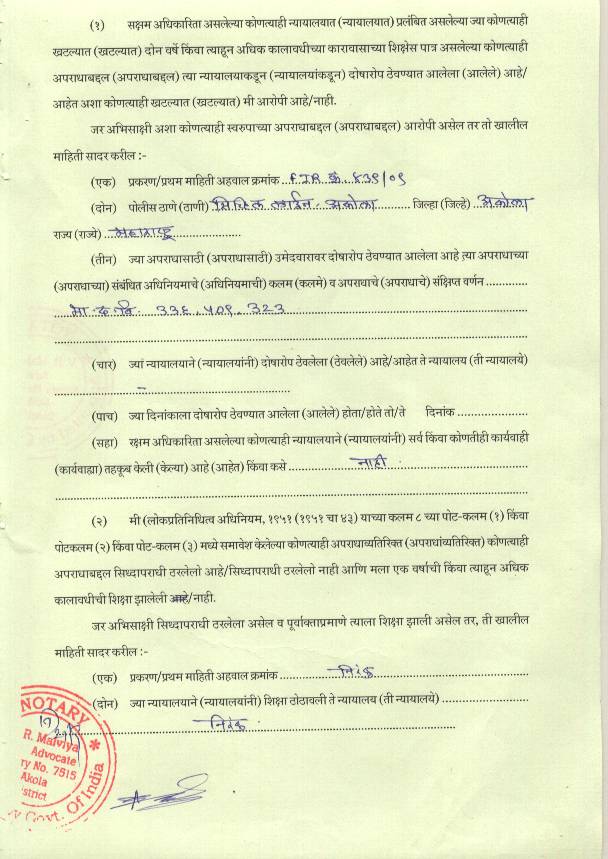 (१) सक्षम अधिकारिता असलेल्या कोणत्याही न्यायालयात (न्यायालयात) प्रलंबित असलेल्या ज्या कोणत्याही
खटल्यात (खटल्यात) दोन वर्षे किंवा त्याहून अधिक कालावधीच्या कारावासाच्या शिक्षेस पात्र असलेल्या कोणत्याही
अपराधाबद्दल (अपराधाबद्दल) त्या न्यायालयाकडून (न्यायालयांकडून) दोषारोप ठेवण्यात आलेला (आलेले) आहे/
आहेत अशा कोणत्याही खटल्यात (खटल्यात) मी आरोपी आहे/नाही.
जर अभिसाक्षी अशा कोणत्याही स्वरुपाच्या अपराधाबद्दल (अपराधाबद्दल) आरोपी असेल तर तो खालील
माहिती सादर करील :-
(एक) प्रकरण/प्रथम माहिती अहवाल क्रमांक ...FIR क्र. ४३९/०९
(दोन) पोलीस ठाणे (ठाणी) सिव्हिल लाईन. अकोला ........... जिल्हा (जिल्हे) ..अकोला
राज्य (राज्ये) ..महाराष्ट्र......................
(तीन) ज्या अपराधासाठी (अपराधासाठी) उमेदवारावर दोषारोप ठेवण्यात आलेला आहे त्या अपराधाच्या
(अपराधाच्या) संबंधित अधिनियमाचे (अधिनियमाची) कलम (कलमे) व अपराधाचे (अपराधाचे) संक्षिप्त वर्णन .............
भा. द. वि. ३३६, ५०९, ३२३
(चार) ज्या न्यायालयाने (न्यायालयांनी) दोषारोप ठेवलेला (ठेवलेले) आहे/आहेत ते न्यायालय (ती न्यायालये)
–
(पाच) ज्या दिनांकाला दोषारोप ठेवण्यात आलेला (आलेले) होता/होते तो/ते दिनांक ....................
(सहा) रक्षम अधिकारिता असलेल्या कोणत्याही न्यायालयाने (न्यायालयांनी) सर्व किंवा कोणतीही कार्यवाही
(कार्यवाह्या) तहकूब केली (केल्या) आहे (आहेत) किंवा कसे ....................नाही....................
(२) मी (लोकप्रतिनिधित्व अधिनियम, १९५१ (१९५१ चा ४३) याच्या कलम ८ च्या पोट-कलम (१) किंवा
पोटकलम (२) किंवा पोट-कलम (३) मध्ये समावेश केलेल्या कोणत्याही अपराधाव्यतिरिक्त (अपराधांव्यतिरिक्त) कोणत्याही
अपराधाबद्दल सिध्दापराधी ठरलेलो आहे/सिध्दापराधी ठरलेलो नाही आणि मला एक वर्षाची किंवा त्याहून अधिक
कालावधीची शिक्षा झालेली आहे/नाही.
जर अभिसाक्षी सिध्दापराधी ठरलेला असेल व पूर्वोक्ताप्रमाणे त्याला शिक्षा झाली असेल तर, ती खालील
माहिती सादर करील :-
(एक) प्रकरण/प्रथम माहिती अहवाल क्रमांक ..............निरंक....................
(दोन) ज्या न्यायालयाने (न्यायालयांनी) शिक्षा ठोठावली ते न्यायालय (ती न्यायालये) ......................
निरंक
NOTARY
R. Malviya
Advocate
ry No. 7515
Akola
strict
Govt. Of India